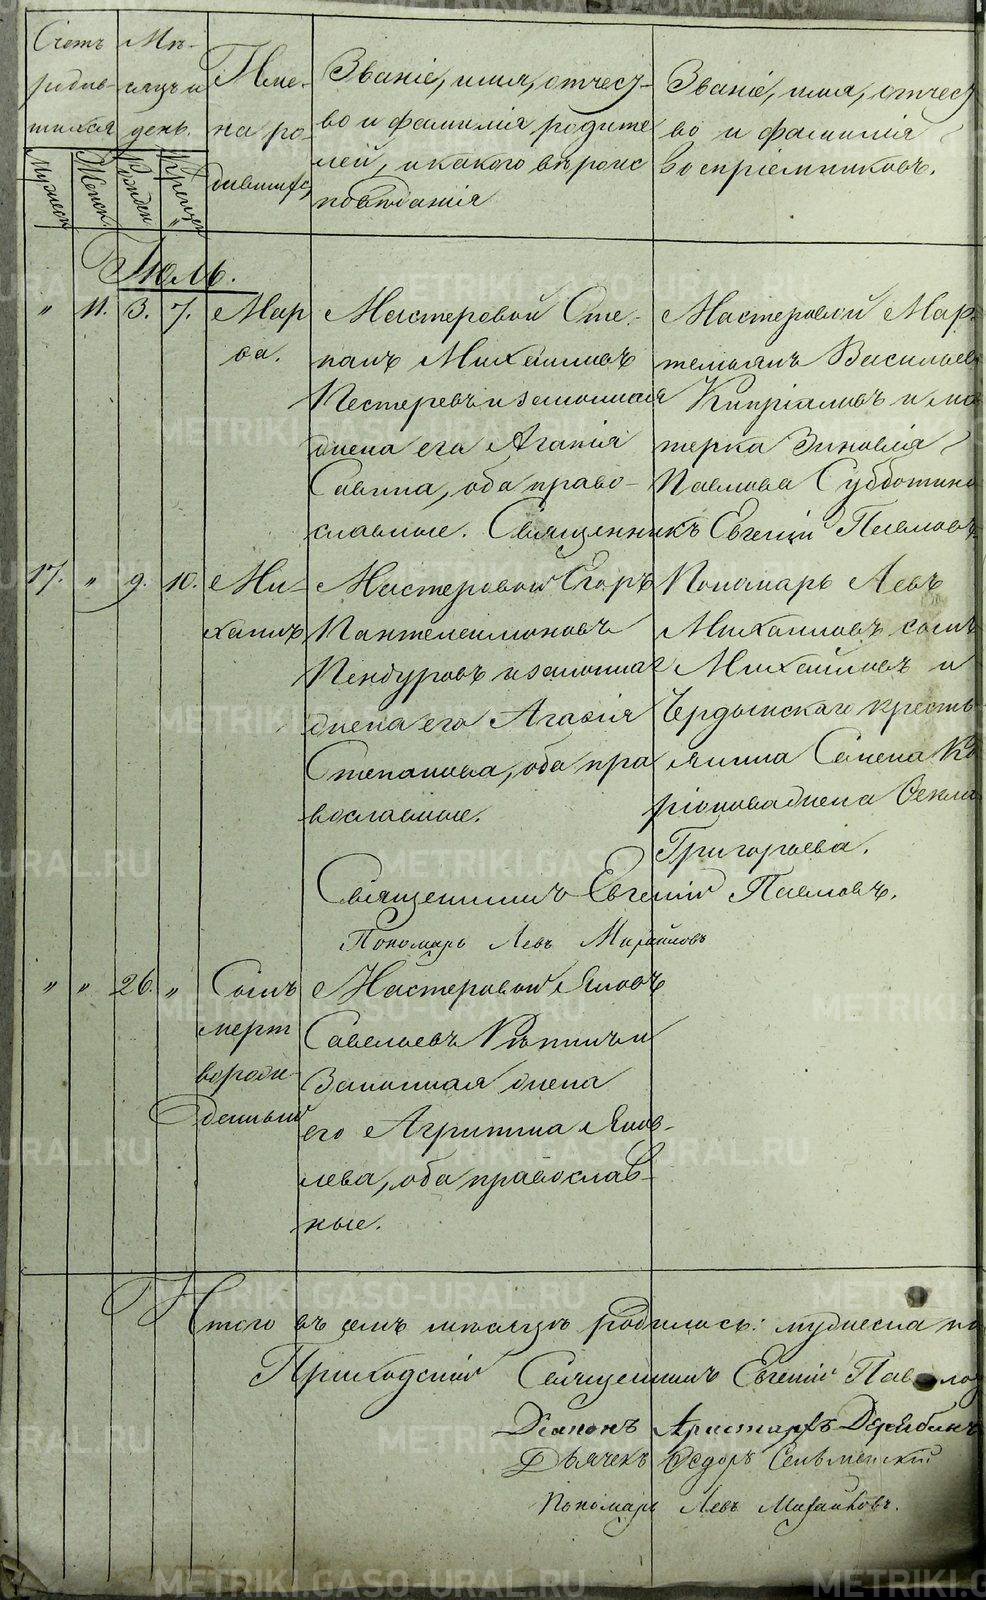 Счетъ
родив-
шихся
Мѣ-
сяцъ и
день.
Име-
на ро-
дившихся
Званіе, имя, отчест-
во и фамилія родите
лей, и какого вѣроис
повѣданія
Званіе, имя, отчест
во и фамилія
воспріемниковъ.
Мужеск
Женск.
Рожден
Крещен
Іюль.
" 11. 3. 7.
Мар
ѳа.
Мастеровой Сте-
панъ Михайловъ
Пестеревъ и законная
жена его Агапія
Савина, оба право-
славные. Священникъ Евгеній Павловъ
Мастеровой Мар-
темьянъ Васильев
Кипріяновъ и ма
терка Зиновія
Павлова Субботина
17. " 9. 10.
Ми-
хаилъ
Мастеровой Егоръ
Пантелеимоновъ
Пендуровъ и законная
жена его Агаѳія
Степанова, оба пра
вославные.
Пономарь Левъ
Михайловъ сынъ
Михайловъ и
Чердынскаго кресть
янина Семена
жена Ѳекла
Григорьева.
Священникъ Евгеній Павловъ.
Пономарь Левъ Михайловъ
" " 26. "
Сынъ
мерт
ворож
денный
Мастеровой Яковъ
Савельевъ и
Законная жена
его Агрипина Яков-
лева, оба православ-
ные.
Итого въ семъ мѣсяцѣ родилось: мужеска по
Приходскій Священникъ Евгеній Павлов
Діаконъ Аристархъ Дерябинъ
Дьячекъ Ѳедоръ Сельменскій
Пономарь Левъ Михайловъ.
METRIKI.GASO-URAL.RU